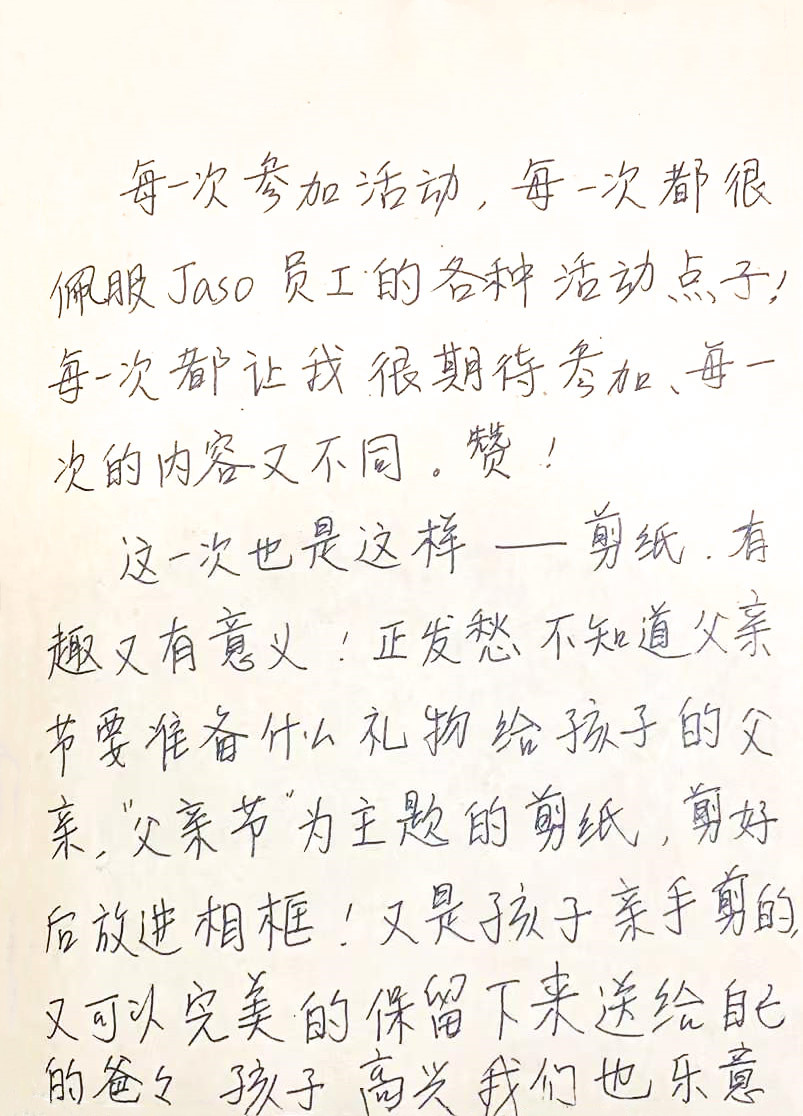 每一次参加活动，每一次都很
佩服Jaso员工的各种活动点子！
每一次都让我很期待参加、每一
次的内容又不同。赞！
这一次也是这样——剪纸．有
趣又有意义！正发愁不知道父亲
节要准备什么礼物给孩子的父
亲，“父亲节”为主题的剪纸，剪好
后放进相框！又是孩子亲手剪的，
又可以完美的保留下来送给自己
的爸々 孩子高兴我们也乐意